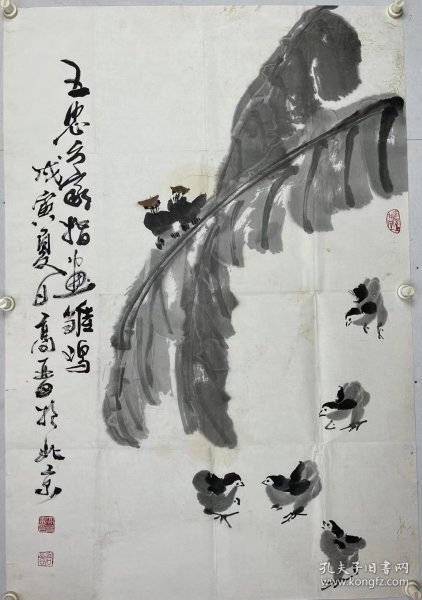 五忠方家指画雏鸡
戊寅夏日高晋於北京
孔夫子旧书网
www.kongfz.com